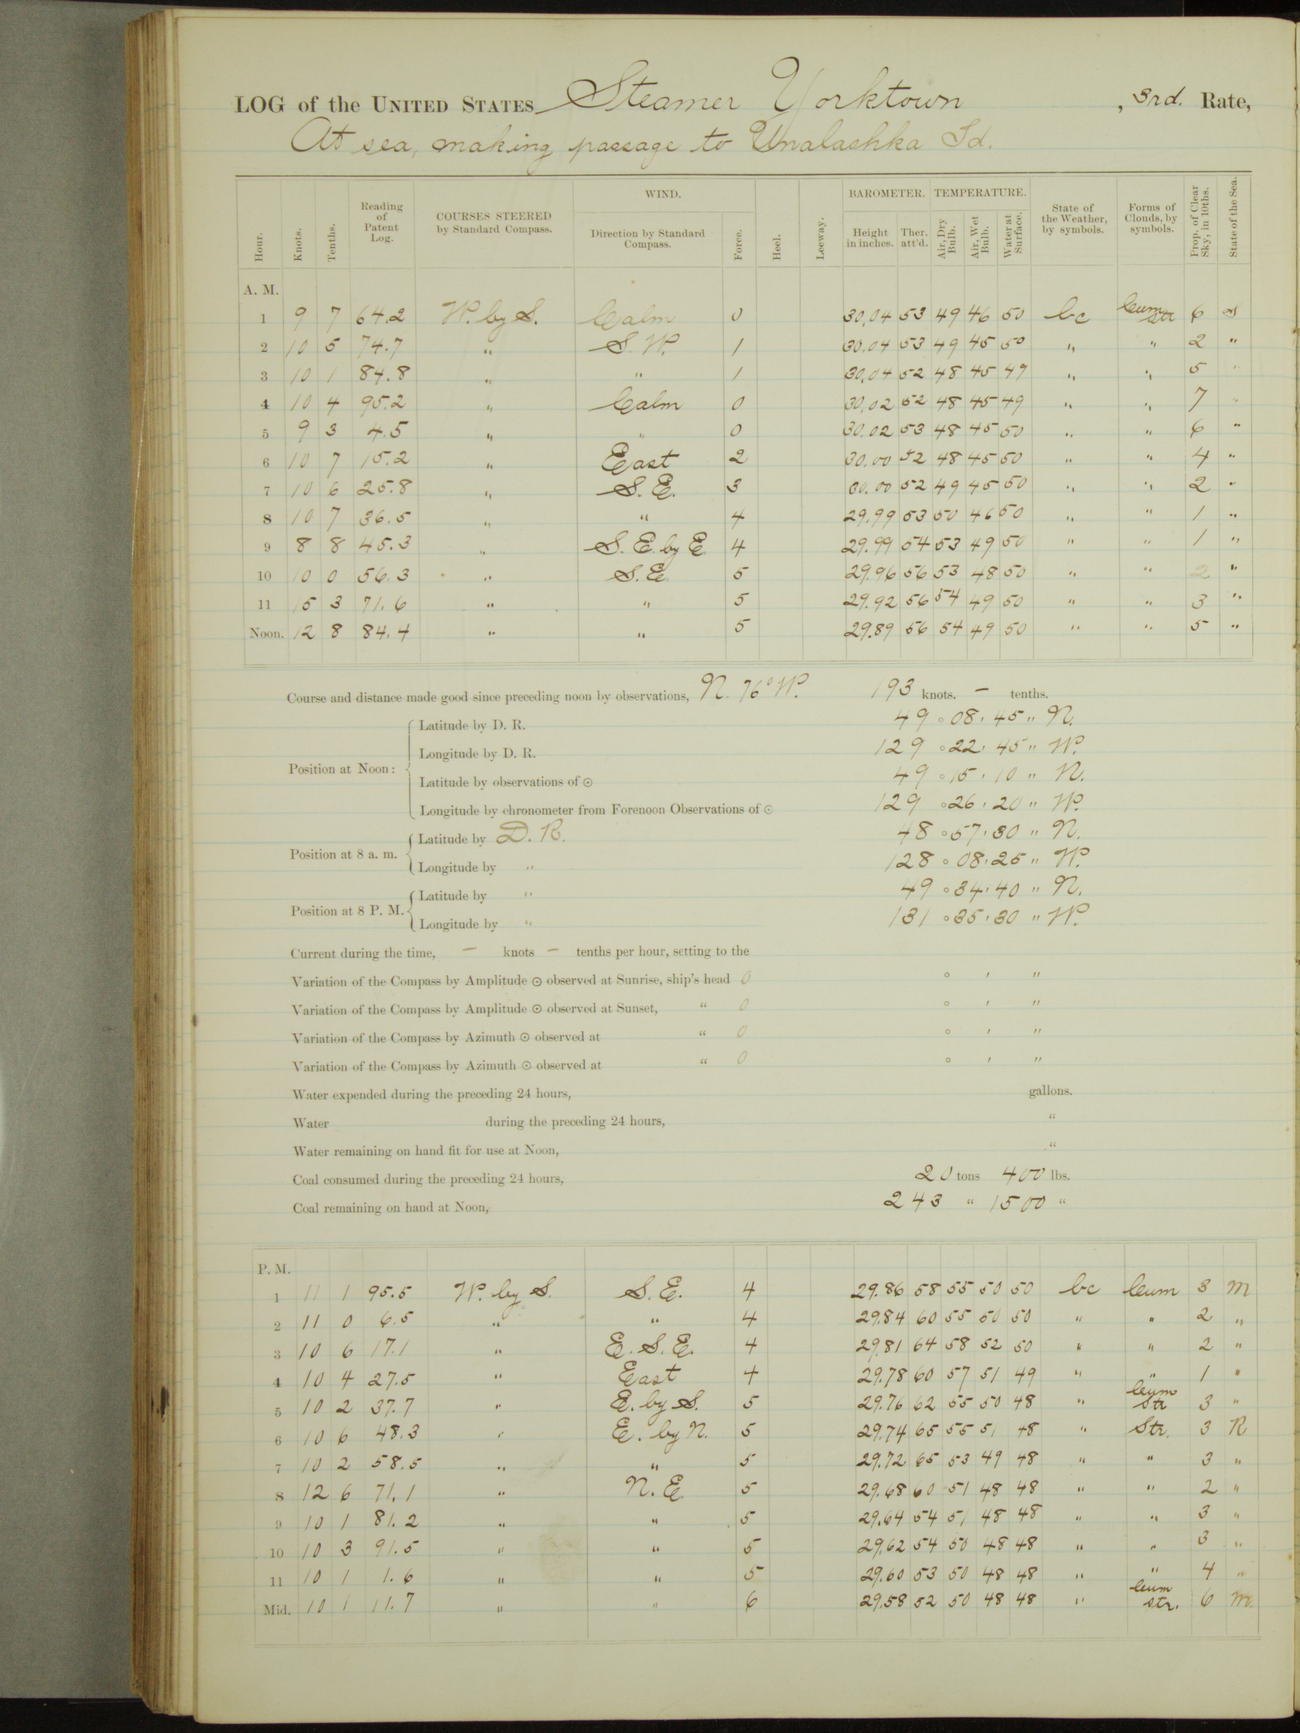 LOG of the UNITED STATES Steamer Yorktown , 3rd. Rate,
At sea, making passage to Unalashka Id.
Hour. Knots. Tenths. Reading of Patent Log. COURSES STEERED by Standard Compass. WIND. Direction by Standard Compass. Force. Heel. Leeway. BAROMETER. Height in inches. Ther. att'd. TEMPERATURE. Air, Dry Bulb. Air, Wet Bulb. Water at Surface. State of the Weather, by symbols. Forms of Clouds, by symbols. Prop. of Clear Sky, in 10ths. State of the Sea.
A. M.
1 9 7 64.2 W. by S. Calm 0 30.04 53 49 46 50 bc Cum str 6 S
2 10 5 74.7 " S. W. 1 30.04 53 49 45 50 " " 2 "
3 10 1 84.8 " " 1 30.04 52 48 45 49 " " 5 "
4 10 4 95.2 " Calm 0 30.02 52 48 45 49 " " 7 "
5 9 3 4.5 " " 0 30.02 53 48 45 50 " " 6 "
6 10 7 15.2 " East 2 30.00 52 48 45 50 " " 4 "
7 10 6 25.8 " S. E. 3 30.00 52 49 45 50 " " 2 "
8 10 7 36.5 " " 4 29.99 53 50 46 50 " " 1 "
9 8 8 45.3 " S. E. by E 4 29.99 54 53 49 50 " " 1 "
10 10 0 56.3 " S. E 5 29.96 56 53 48 50 " " 2 "
11 15 3 71.6 " " 5 29.92 56 54 49 50 " " 3 "
Noon. 12 8 84.4 " " 5 29.89 56 54 49 50 " " 5 "
Course and distance made good since preceding noon by observations, N. 76° W. 193 knots. — tenths.
Position at Noon: Latitude by D. R. 49 ° 08 ' 45 " N.
Longitude by D. R. 129 ° 22 ' 45 " W.
Latitude by observations of ☉ 49 ° 15 ' 10 " N.
Longitude by chronometer from Forenoon Observations of ☉ 129 ° 26 ' 20 " W.
Position at 8 a. m. Latitude by D. R. 48 ° 57 ' 30 " N.
Longitude by " 128 ° 08 ' 25 " W.
Position at 8 P. M. Latitude by " 49 ° 34 ' 40 " N.
Longitude by " 131 ° 35 ' 30 " W.
Current during the time, — knots — tenths per hour, setting to the
Variation of the Compass by Amplitude ☉ observed at Sunrise, ship's head 0 ° ' "
Variation of the Compass by Amplitude ☉ observed at Sunset, " 0 ° ' "
Variation of the Compass by Azimuth ☉ observed at " 0 ° ' "
Variation of the Compass by Azimuth ☉ observed at " 0 ° ' "
Water expended during the preceding 24 hours, gallons.
Water during the preceding 24 hours, "
Water remaining on hand fit for use at Noon, "
Coal consumed during the preceding 24 hours, 20 tons 400 lbs.
Coal remaining on hand at Noon, 243 " 1500 "
P. M.
1 11 1 95.5 W. by S. S. E. 4 29.86 58 55 50 50 bc Cum 3 M
2 11 0 6.5 " " 4 29.84 60 55 50 50 " " 2 "
3 10 6 17.1 " E. S. E. 4 29.81 64 58 52 50 " " 2 "
4 10 4 27.5 " East 4 29.78 60 57 51 49 " " 1 "
5 10 2 37.7 " E. by S. 5 29.76 62 55 50 48 " Cum Str 3 "
6 10 6 48.3 " E. by N. 5 29.74 65 55 51 48 " Str. 3 R
7 10 2 58.5 " " 5 29.72 65 53 49 48 " " 3 "
8 12 6 71.1 " N. E 5 29.68 60 51 48 48 " " 2 "
9 10 1 81.2 " " 5 29.64 54 51 48 48 " " 3 "
10 10 3 91.5 " " 5 29.62 54 50 48 48 " " 3 "
11 10 1 1.6 " " 5 29.60 53 50 48 48 " " 4 "
Mid. 10 1 11.7 " " 6 29.58 52 50 48 48 " Cum str. 6 M.